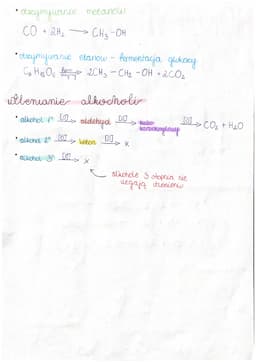 • otrzymywanie metanolu
CO + 2H₂ → CH₃-OH
• otrzymywanie etanolu - fermentacja glukozy
C₆H₁₂O₆ → 2CH₃-CH₂-OH + 2CO₂
utlenianie alkoholi
• alkohol 1° [O]→ aldehyd [O]→ kwas karboksylowy [O]→ CO₂ + H₂O
• alkohol 2° [O]→ keton [O]→ x
• alkohol 3° [O]→ x
alkohole 3 stopnia nie
ulegają utlenieniu